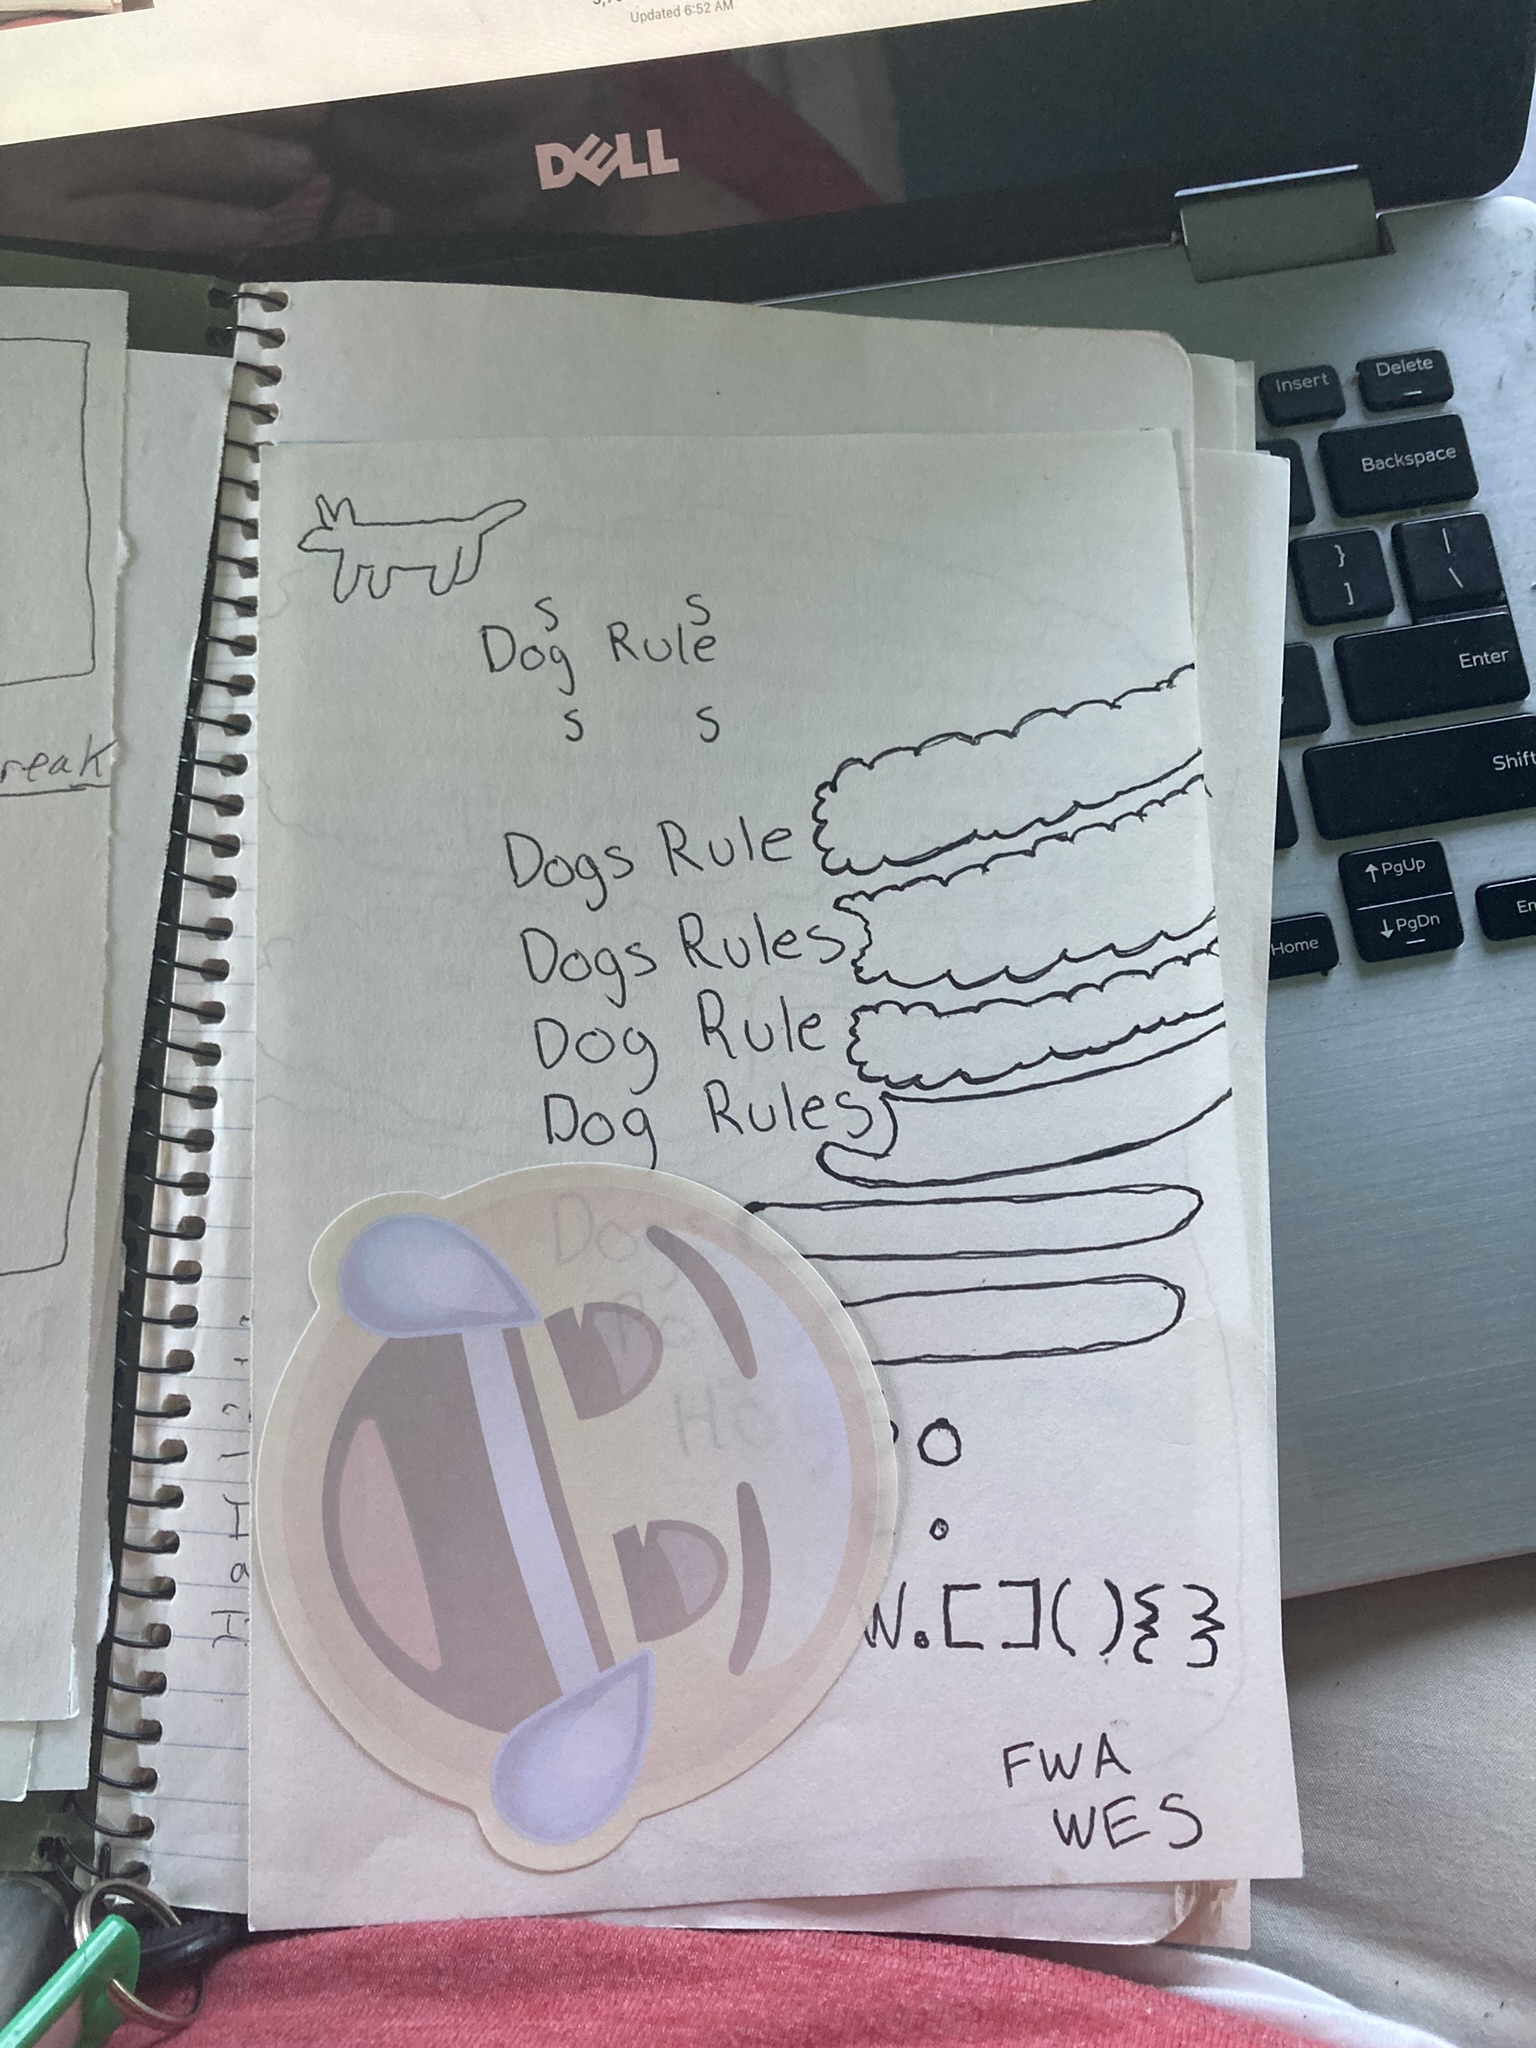 Updated 6:52 AM
DELL
Insert
Delete
Backspace
}
]
|
\
Enter
Shift
↑PgUp
↓PgDn
Home
s s
Dog Rule
s s
Dogs Rule
Dogs Rules
Dog Rule
Dog Rules
Ho
O
o
W.[](){}
FWA
WES